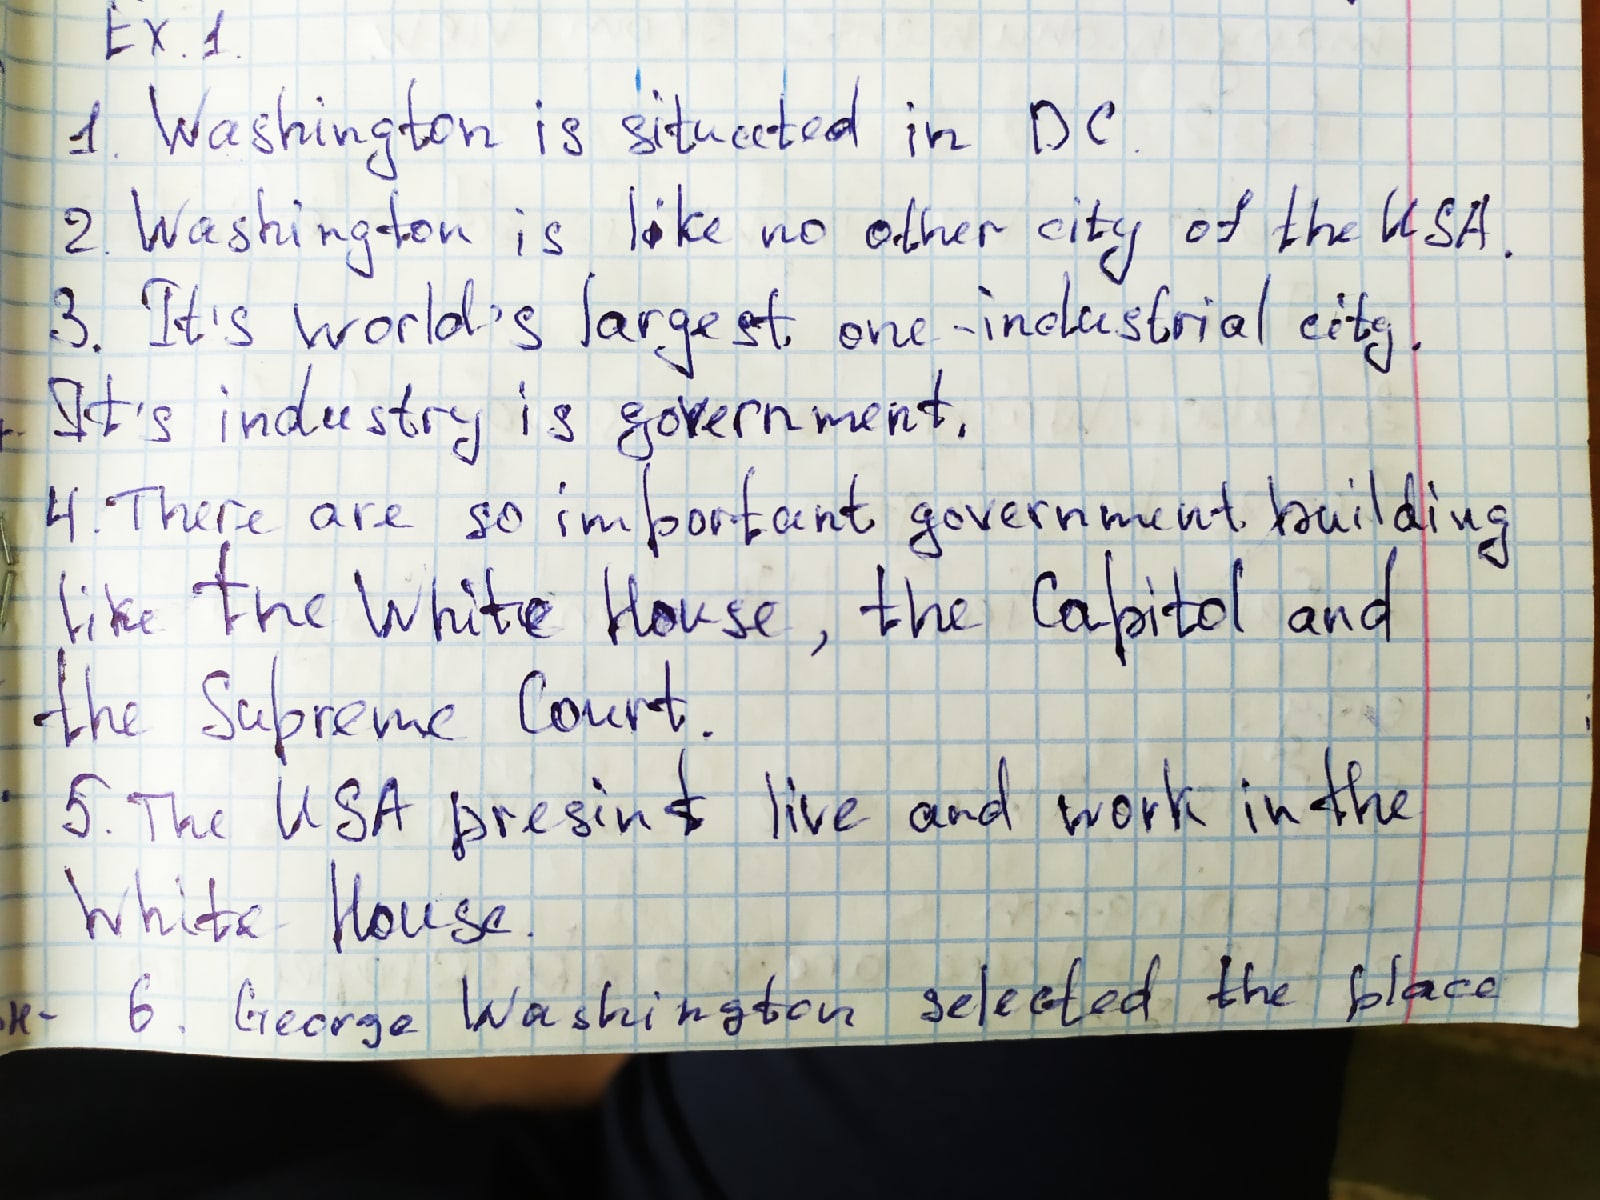 Ex. 1.
1. Washington is situated in DC.
2. Washington is like no other city of the USA.
3. It's world's largest one-industrial city.
It's industry is government.
4. There are so important government building
like the White House, the Capitol and
the Supreme Court.
5. The USA presint live and work in the
White House.
6. George Washington selected the place